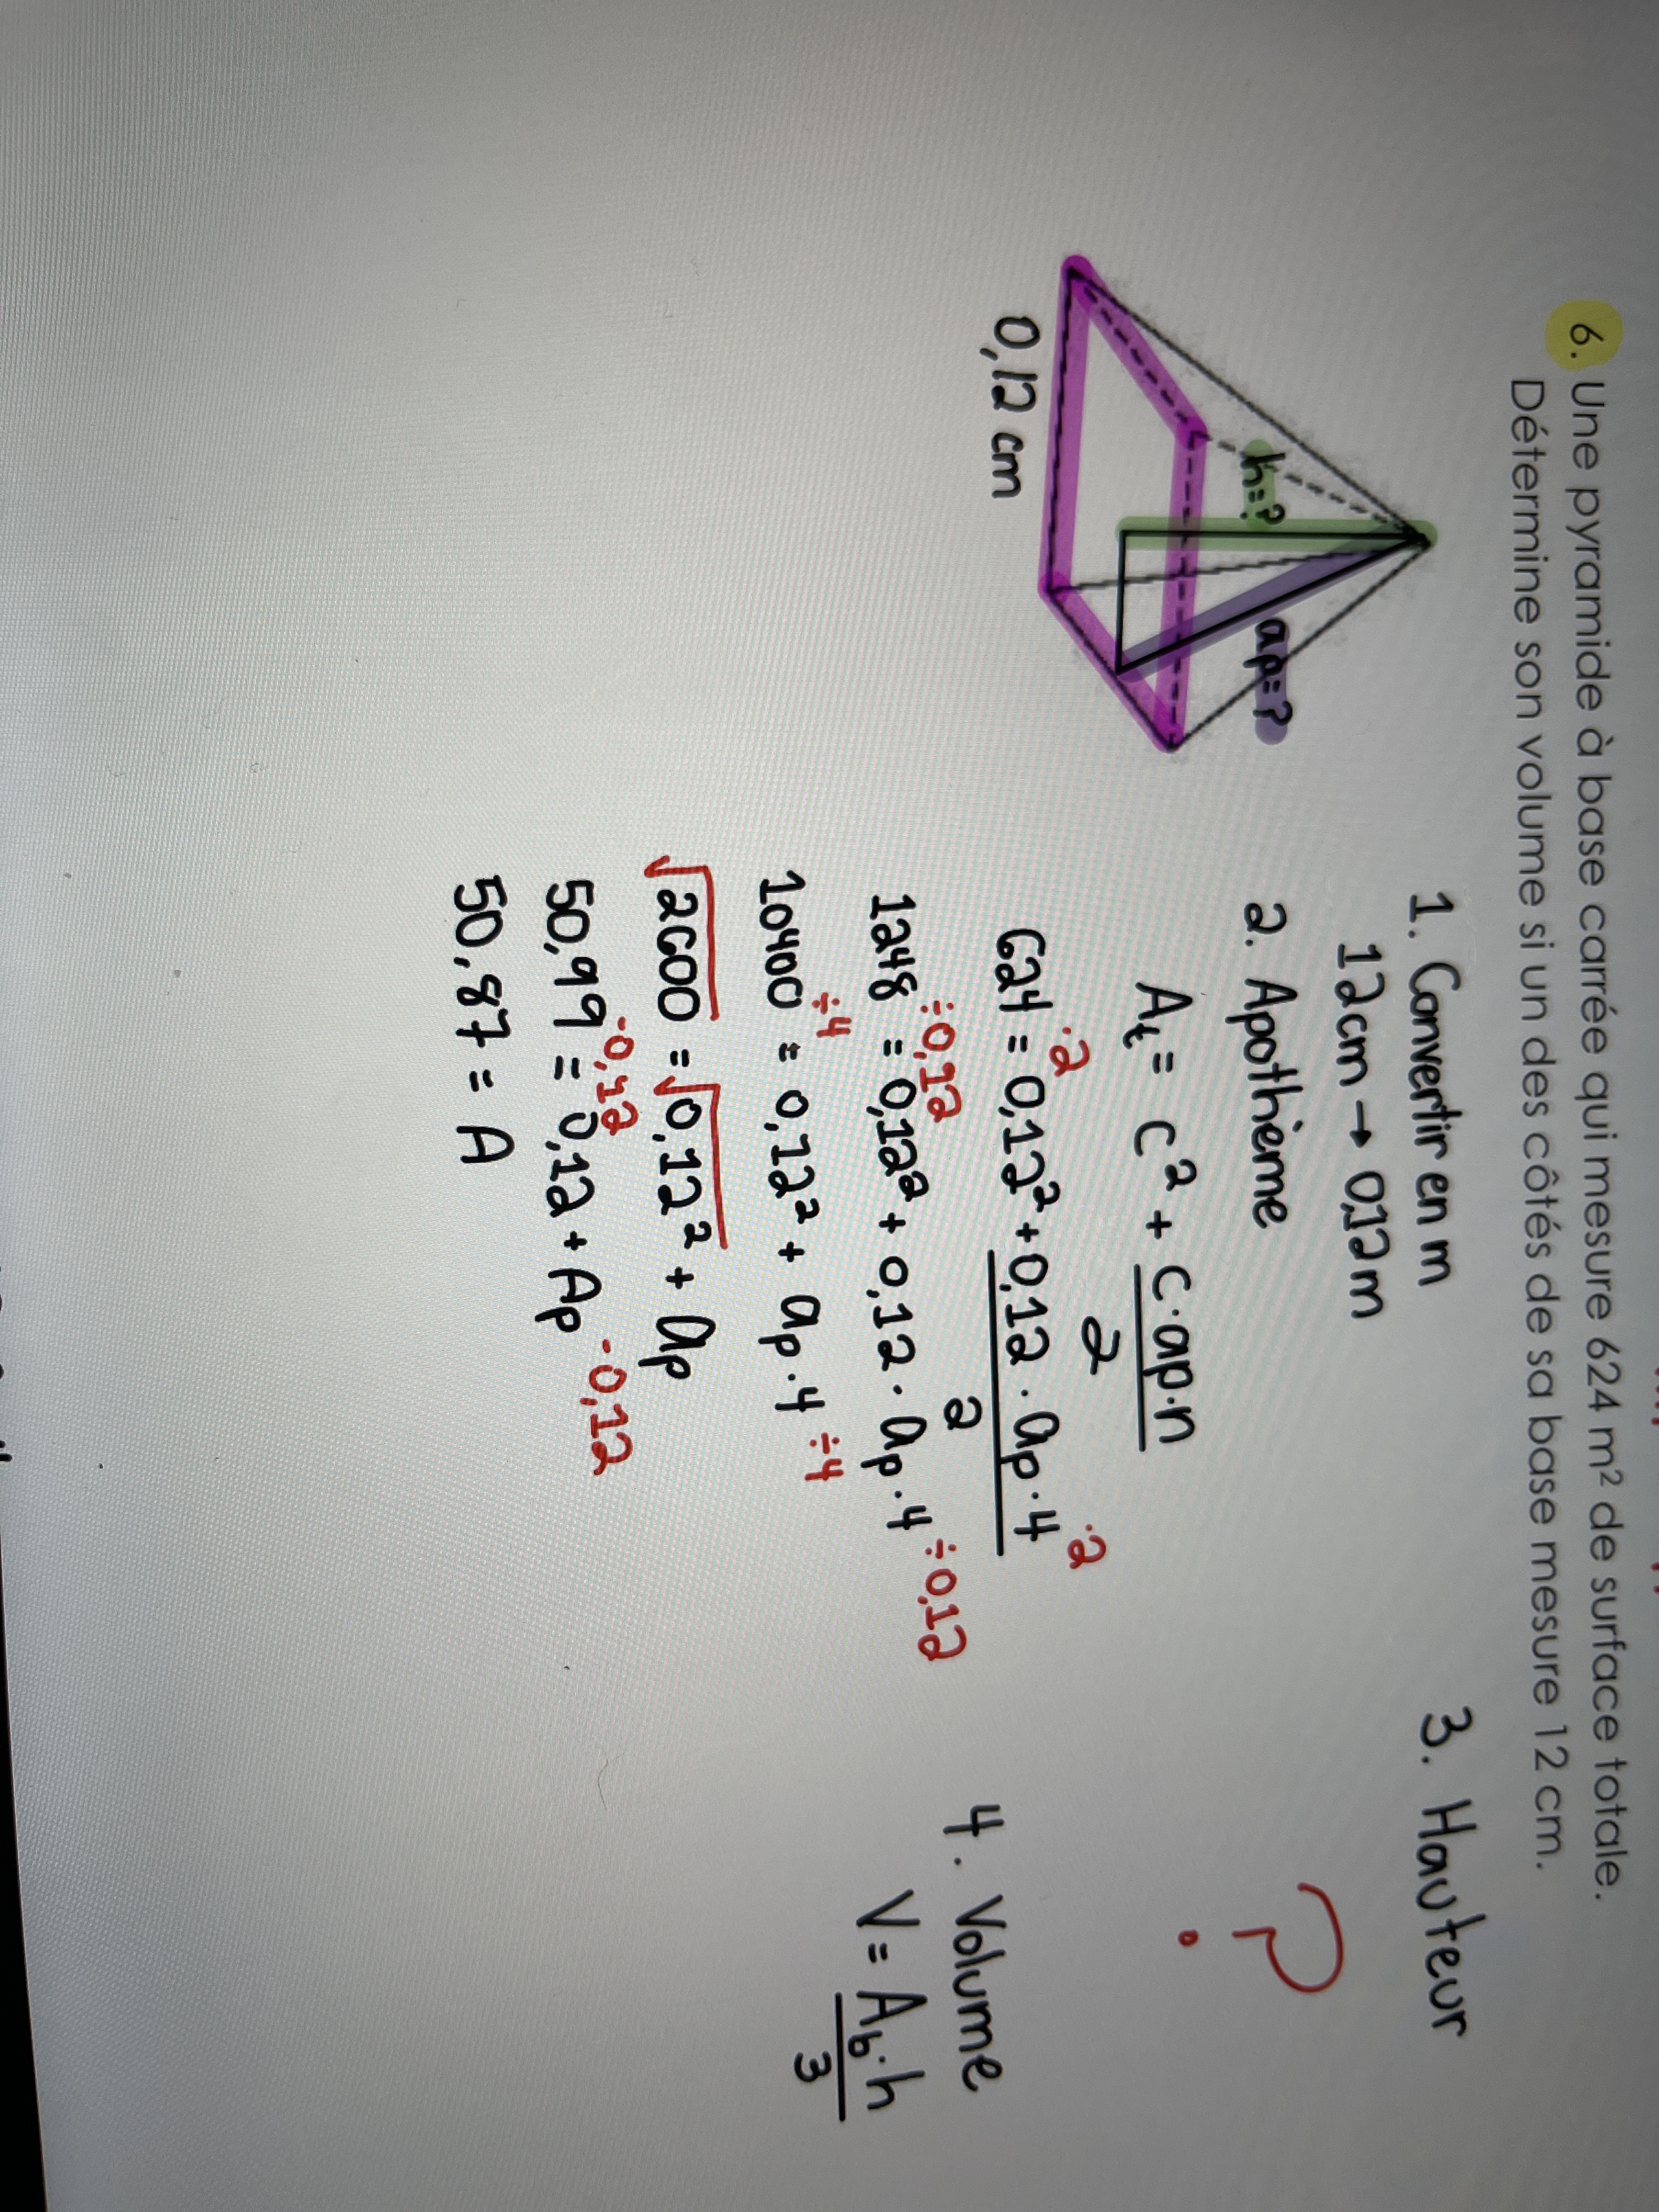 6. Une pyramide à base carrée qui mesure 624 m² de surface totale.
Détermine son volume si un des côtés de sa base mesure 12 cm.
h=?
ap=?
0,12 cm
1. Convertir en m
12cm → 0,12m
2. Apothème
At = c² + c·ap·n
2
·2 ·2
624 = 0,12² + 0,12 · ap · 4
2
÷0,12 ÷0,12
1248 = 0,12² + 0,12 · ap · 4
÷4 ÷4
10400 = 0,12² + ap · 4
√2600 = √0,12² + ap
-0,12 -0,12
50,99 = 0,12 + Ap
50,87 = A
3. Hauteur
?
4. Volume
V = Ab·h
3